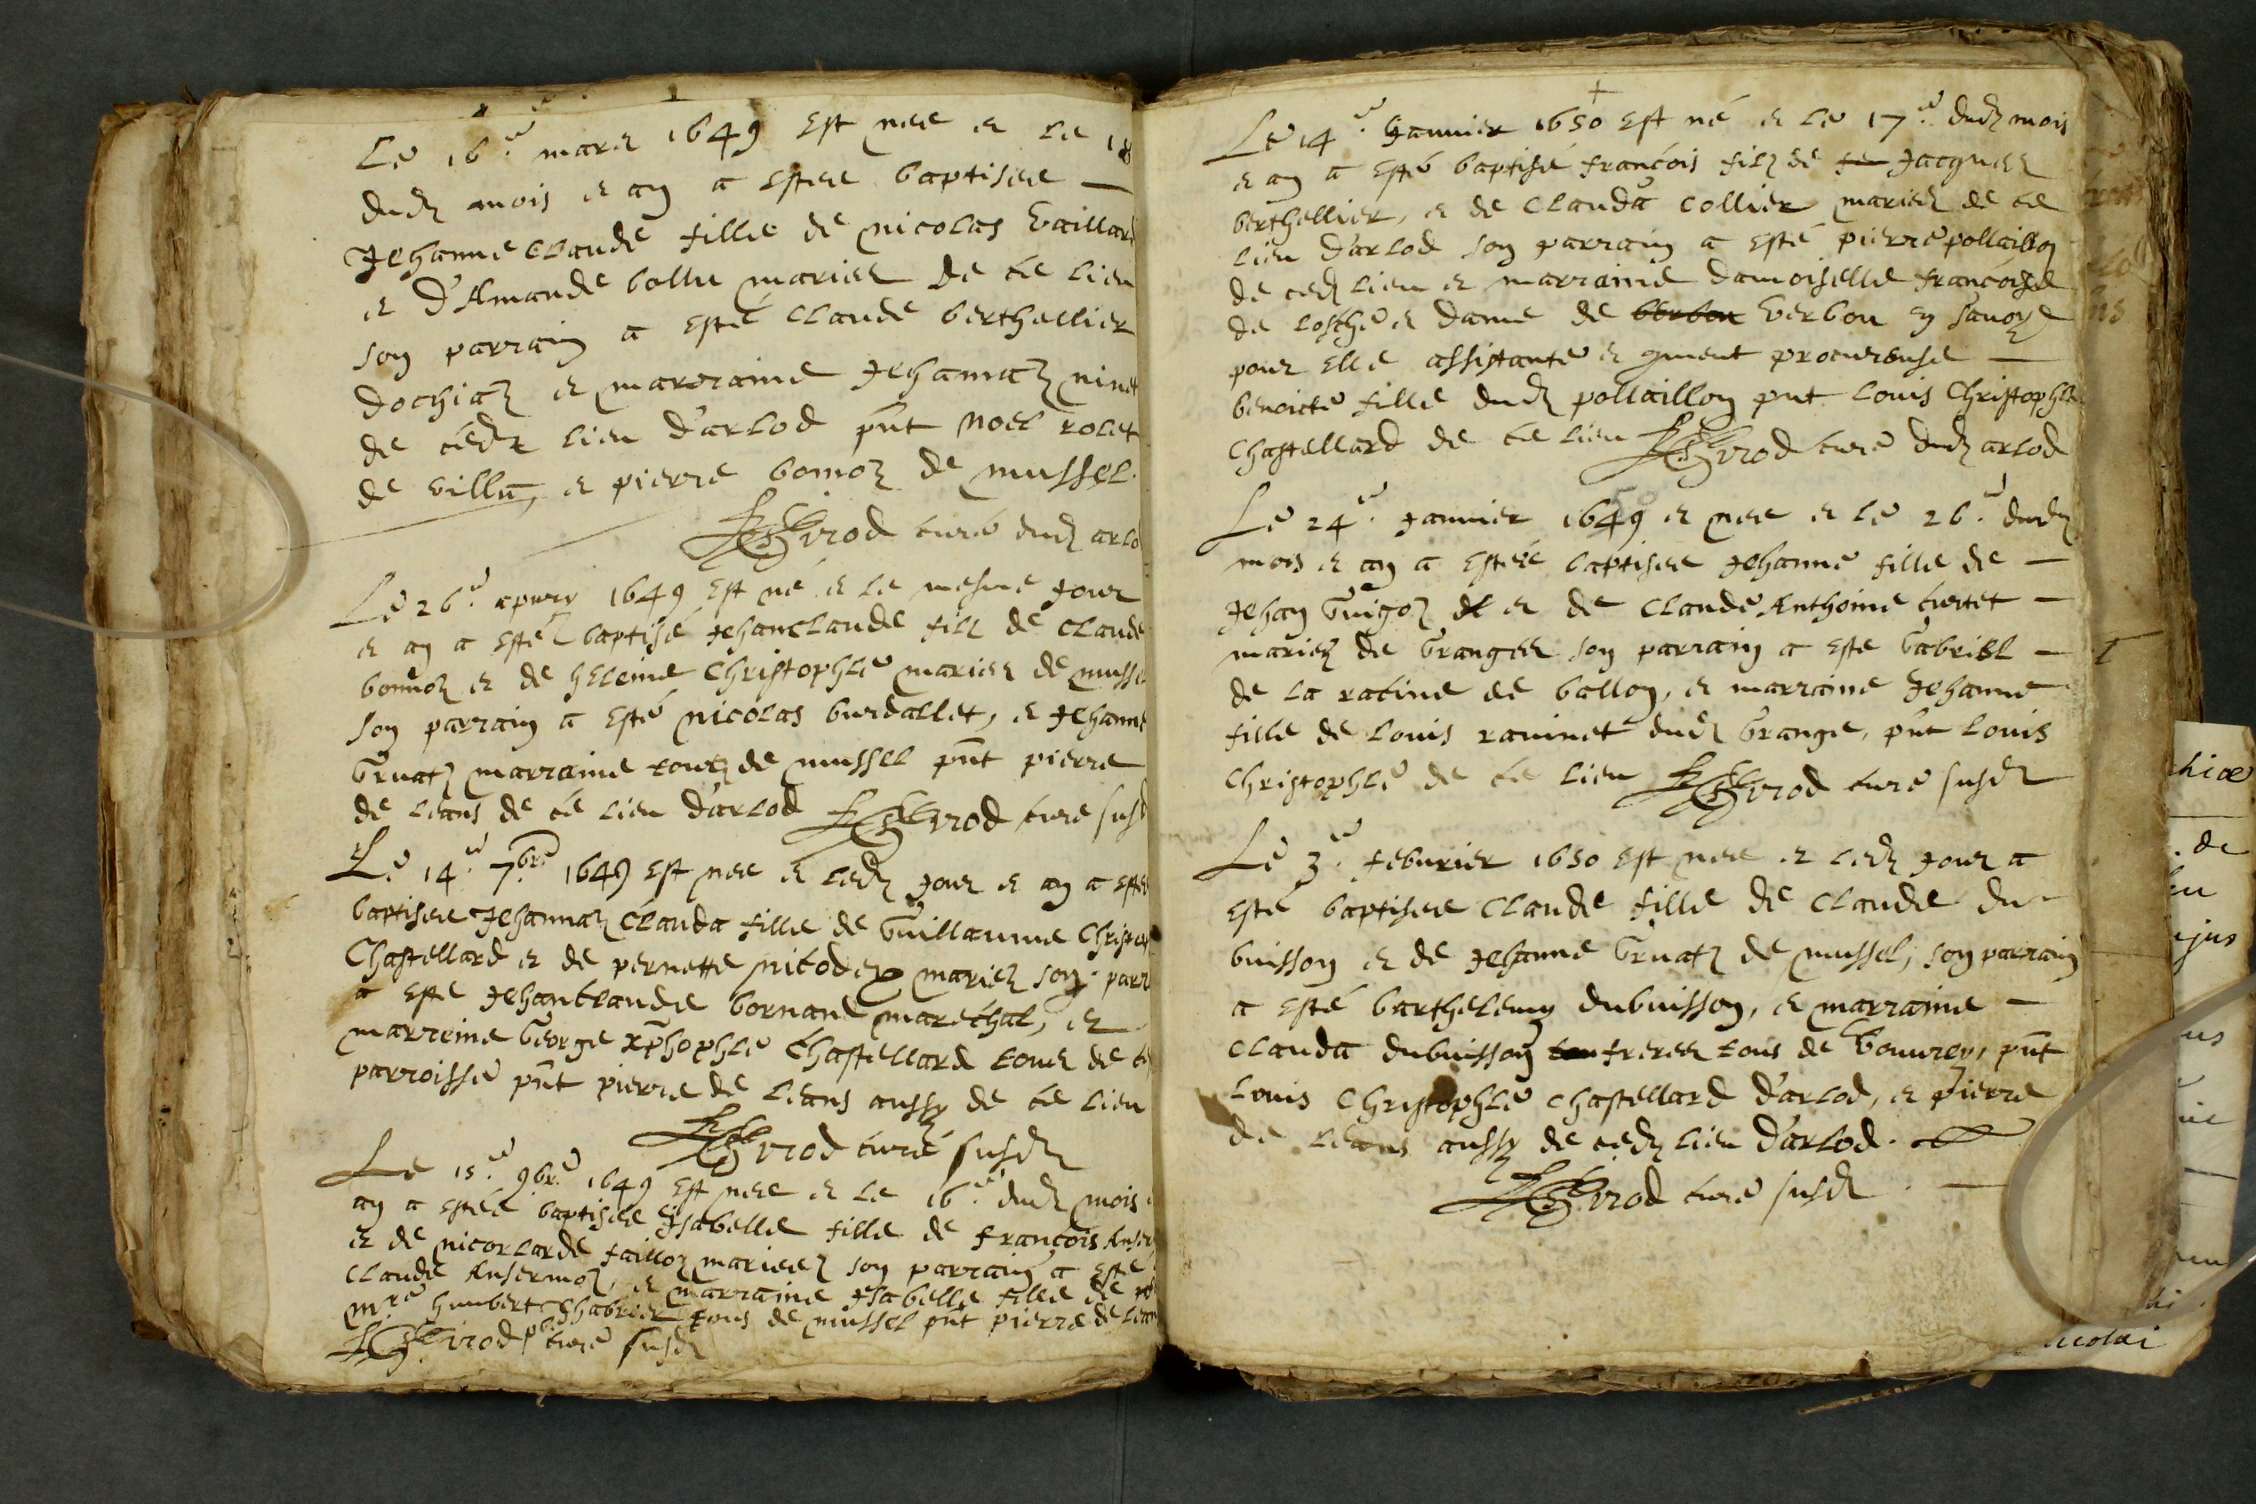 Le 16e mars 1649 est nee et le 18
dud mois et an a estee baptisee
Jehanne claude fille de nicolas Vaillard
et d'Amande bollu mariez De ce lieu
son parrain a esté claude berthellier
dochiaz et marraine Jehannaz ninet
de cedt lieu d'arlod pnt Noel rolet
de villu, et pierre bomoz de mussel.
curé dud arlo
Le 26e 1649 est né et le mesme Jour
et an a esté baptisé Jehanclaude filz de claude
bomoz et de heleine Christophle mariez de musse
son parrain a esté nicolas burdallet, et Jehanne
Gruatz marraine touz de mussel pnt pierre
de leans de ce lieu d'arlod curé susd
Le 14e 7bre 1649 est nee et led Jour et an a estee
baptisee Jehannaz Clauda fille de Guillaume Christop
Chastellard et de pernette nicodex mariez son parr
a esté Jehanclaude bornand marechal, et
marreine George xphophle Chastellard tous de ce
parroisse pnt pierre de leans aussy de ce lieu
curé susd
Le 15e 9bre 1649 est nee et le 16e dud mois e
an a estée baptisee Isabelle fille de françois Anser
et de nicolarde failloz mariez son parrain a esté
claude Ansermoz, et marraine Isabelle fille de
mre humbert Chabrier tous de mussel pnt pierre de lean
curé susd
Le 14e Janvier 1650 est né et le 17e dud mois
et an a esté baptisé françois filz de Jacques
berthellier, et de Clauda Collier mariez de ce
lieu d'arlod son parrain a esté pierre pollaillon
de ced lieu et marraine damoiselle françoise
de losche et dame de berbou Verbou en savoye
pour elle assistante et procureuse
benoicte fille dud pollaillon pnt Louis Christophle
Chastellard de ce lieu curé dud arlod
Le 24e Janvier 1649 et nee et le 26e dud
mois et an a estée baptisee Jehanne fille de
Jehan Guigoz et de Claude Anthoine curtet
mariez de Granges son parrain a esté Gabriel
de la racine de ballon, et marraine Jehanne
fille de Louis ravinet dud Grange, pnt Louis
Christophle de ce lieu curé susd
Le 3e febvrier 1650 est nee et led Jour a
esté baptisee Claude fille de Claude du
buisson et de Jehanne Gruatz de mussel, son parrain
a esté barthelemy dubuisson, et marraine
Clauda dubuisson freres tous de Gouvrey, pnt
Louis Christophle Chastellard d'arlod, et Pierre
de leans aussy de ced lieu d'arlod.
curé susd